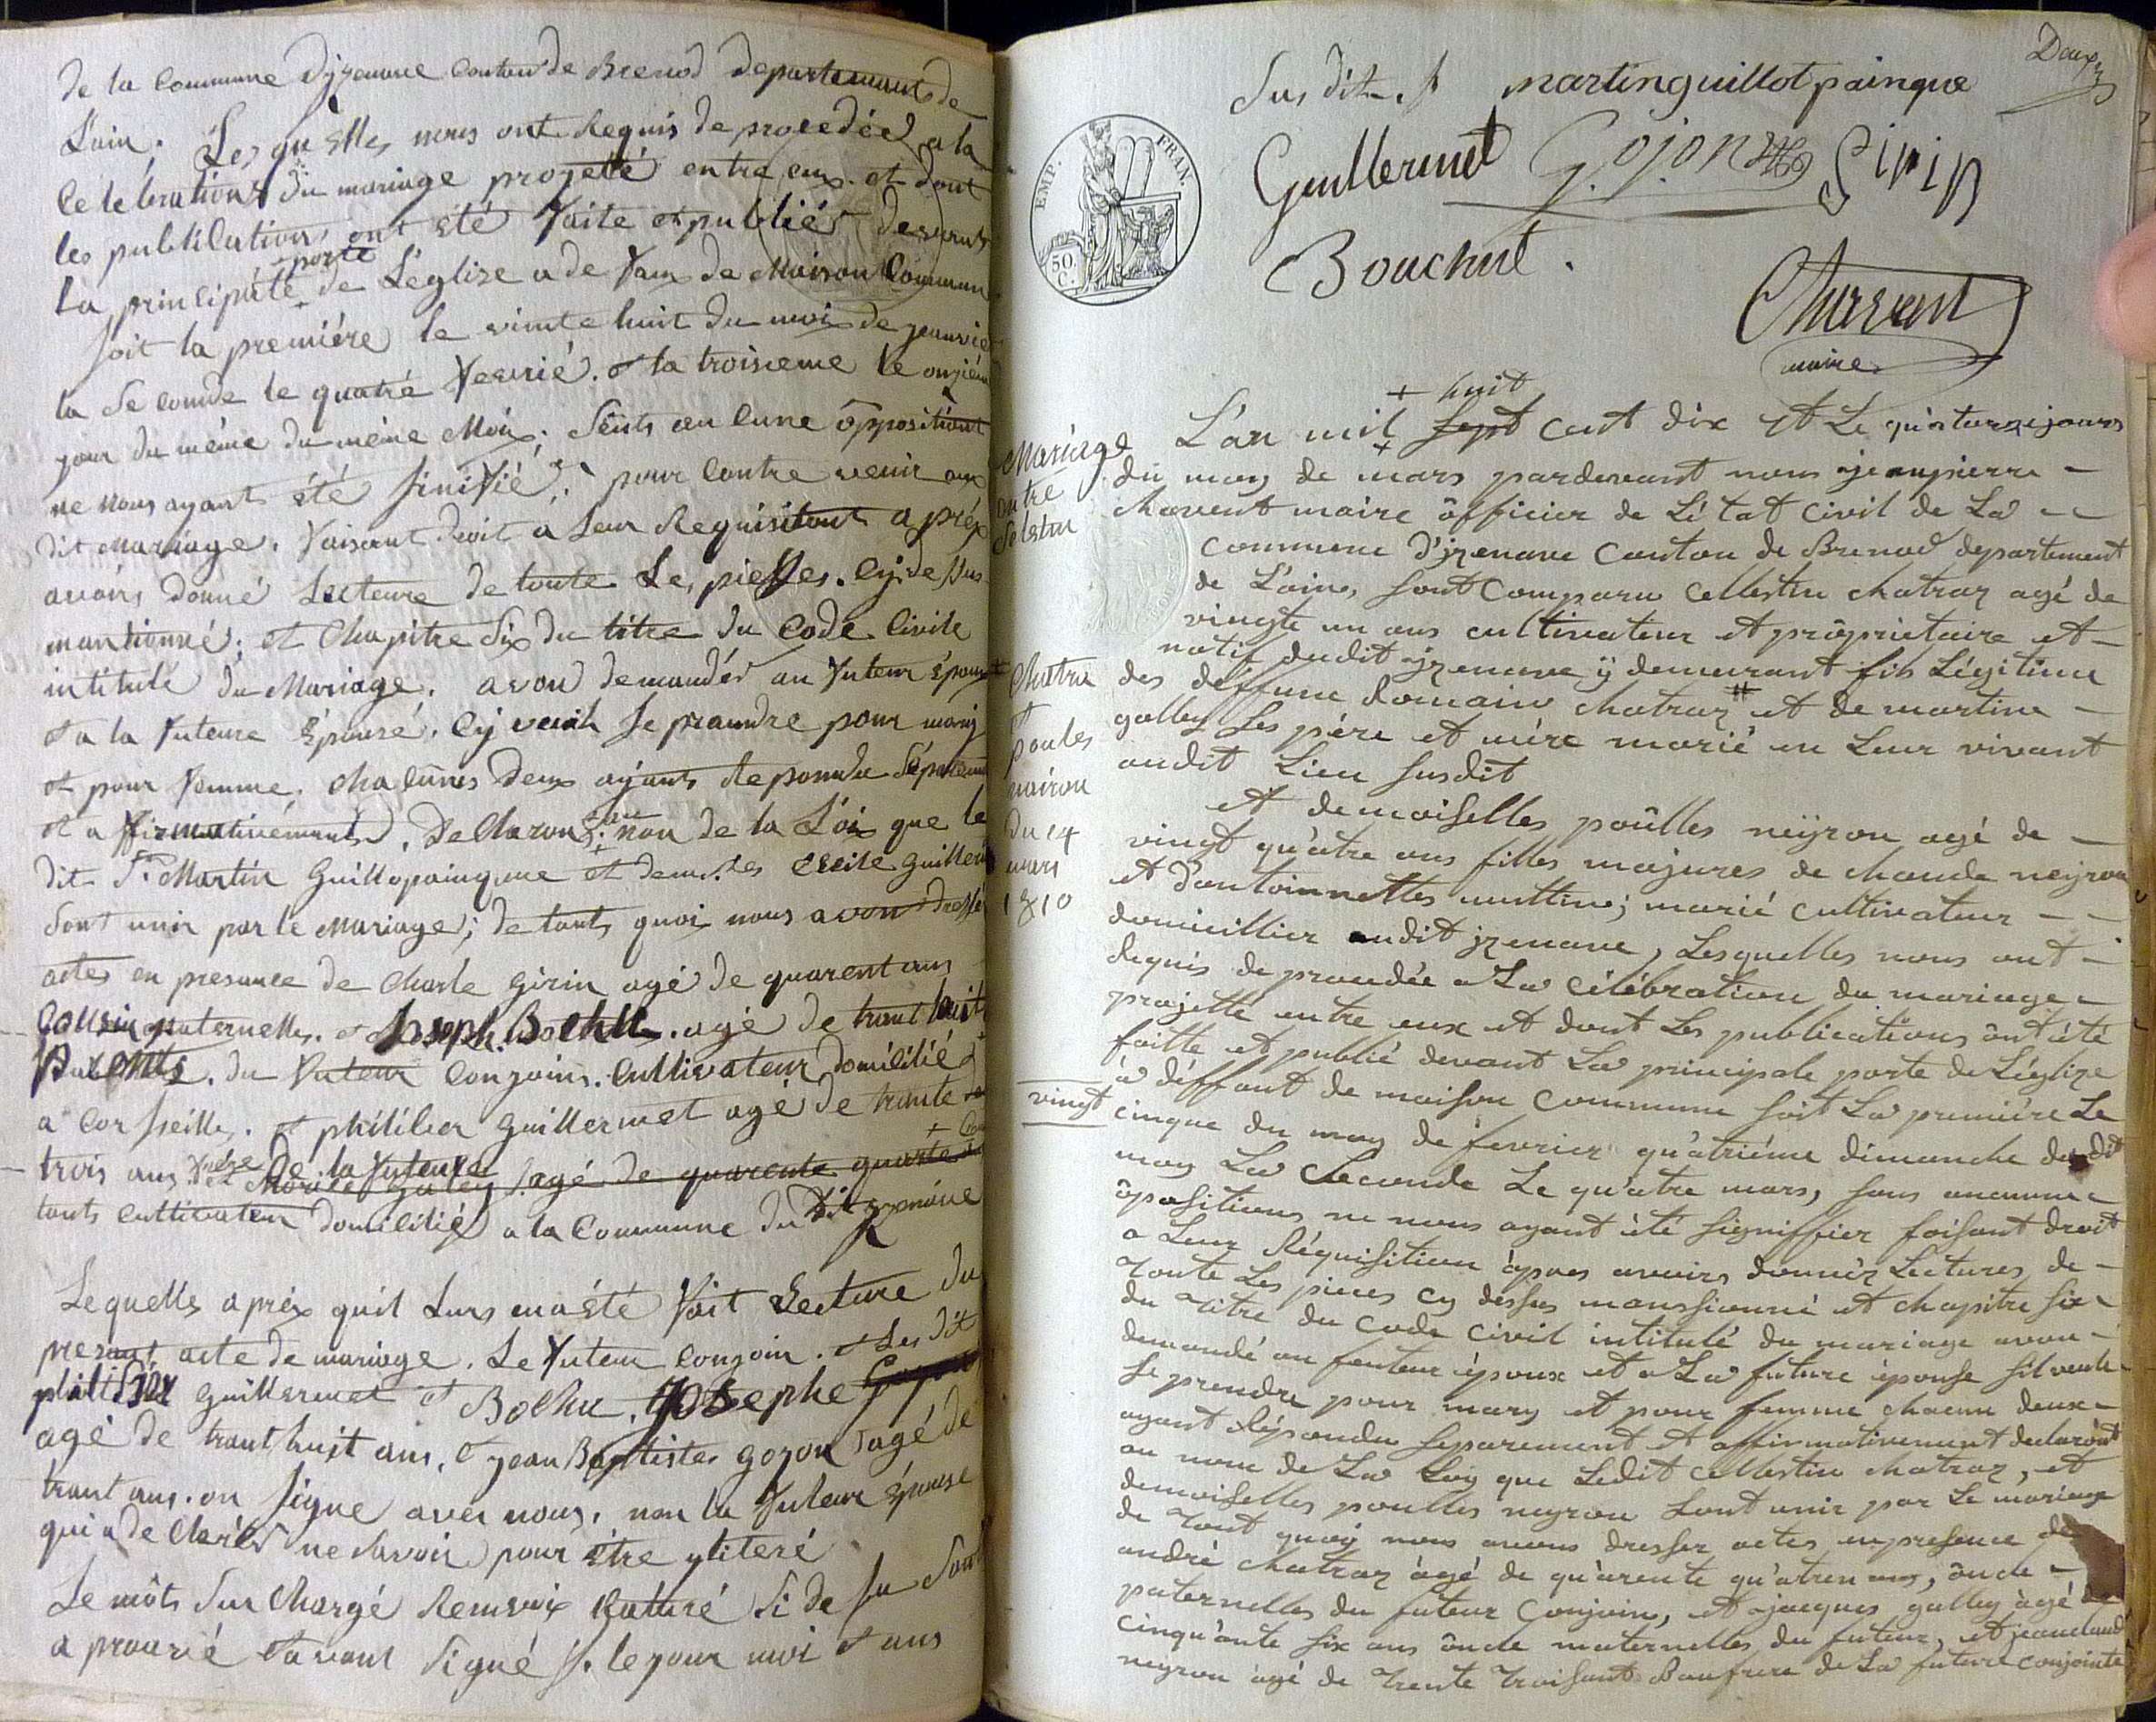 de la Commune d'yzenave Canton de Brenod departemant de
L'ain. Les qu'elles nous ont Requis de procedéé a la
Célébrations du mariage projetté entre eux. et dont
les publications ont été faite et publiér devant
la principale porte de L'église a de faux de Maison Commun
soit la premiére le vinte huit du moi de janvie
la seconde le quatré fevrié. et la troisieme le onziem
jour du même du même Mois; sents aucune oppositiont
ne nous ayant été sinifié; pour contre venir aux
dit Mariage. faisant droit a leur Requisitont aprés
avoirs donné Lecteure de toute Les, pieses. Cy dessus
mantionné; et Chapitre six du titre du Code Civile
intitulé du Mariage. avon demandér au futeur épous
et a la futeure Épousé. Cy veul se praundre pour mariy
et pour femme, chacunes deux ayants Reponndu séparém
et affirmativemant. De Clarons au non de la Loi que le
dit Sr. Martin Guillopainque et demlles Cécile Guiller
sont unir par le Mariage; de touts quoi nous avon dressé
actes en presance de Charle Girin agé de quarent ans
Cousin paternelle. et Joseph Bochu. agé de trant huit
Parents. du futeur conjoins. Cultivateur domicilié
a Corseille. et philiber Guillermet agé de trante
trois ans frére De la futeure agé de quarente quatre
touts cultivateur domicilié a la Commune du Dit yzenave
Lequells aprés quil Leurs ma été fait Lecture du
presant acte de mariage. Le futeur conjoin. et Les dit
philiber Guillermet et Bochu. Josephe Goyon
agé de trant huit ans, et jean Baptiste Goyon agé de
trant ans. on signe avec nous. non la futeur Épouse
qui a de Clarér ne savoir pour être yliteré
Le môts sur Chargé Renvoix Raturé si de su sont
a prouvé et avant signé s. le jour moi et ans
Deux
Sus dit. martin guillot painque
EMP. FRAN.
50. C.
Guillermet Gojon Girin
Bouchut.
Charvent
maire
Mariage
entre
Selestin
Chatra
et
Poules
nairon
du 14
mars
1810
vingt
+ huit
L'an mil sept cent dix et Le quatorze jours
du moy de mars pardevant nous jeanpierre –
chavent maire ôfficier de Létat Civil de La –
Commune d'jzenave Canton de Brenod departement
de L'ain, sont Comparu Cellestin chatraz agé de
vingte un ans cultivateur et propriétaire et –
natif dudit jzenave ÿ demeurant fils Légitime
des deffunc Romain chatraz et de martine –
galley ses pére et mére marié en Leur vivant
audit Lieu susdit
et demoiselles poulles neÿron agé de –
vingt qu'atre ans filles majures de claude neyron
et d'antoinettes mettin; marié cultivateur –
domicillier audit jzenave, Lesquelles nous ont –
Requis de procedée a La Célébration du mariage –
projetté entre eux et dont Les publications ônt été
faitte et publié devant La principale porte de Léglize
à déffaut de maison Commune soit La premiére Le
cinque du moy de février qu'atriéme dimanche du dit
moy La seconde Le qu'atre mars, sans aucunne
ôpositions ne nous ayant été signiffier faisant droit
a Leur Réquisition âpres avoirs donnér Lectures de –
Toute Les pieces Cy dessus manssionné et chapitre six
du Titre du Code Civil intitulé du mariage avon –
demandé au feuteur époux et a La future épouse sil veule
se prendre pour mary et pour femme chacun deux –
ayant Répondu separement et affirmativement declarônt
au nom de La Loy que Ledit Cellestin chatraz, et
demoiselles poulles neyron sont unir par Le mariage
de Tout quoy nous avons dresser actes en presence de
andré chatraz âgé de qu'arente qu'atre ans, ôncle –
paternelles du futeur Conjoins, et jacques galley âgé de
cinqu'ante six ans ôncle maternelles du futeur, et jeanclaud
neyron âgé de trente troisants Baufrere de La future conjointe